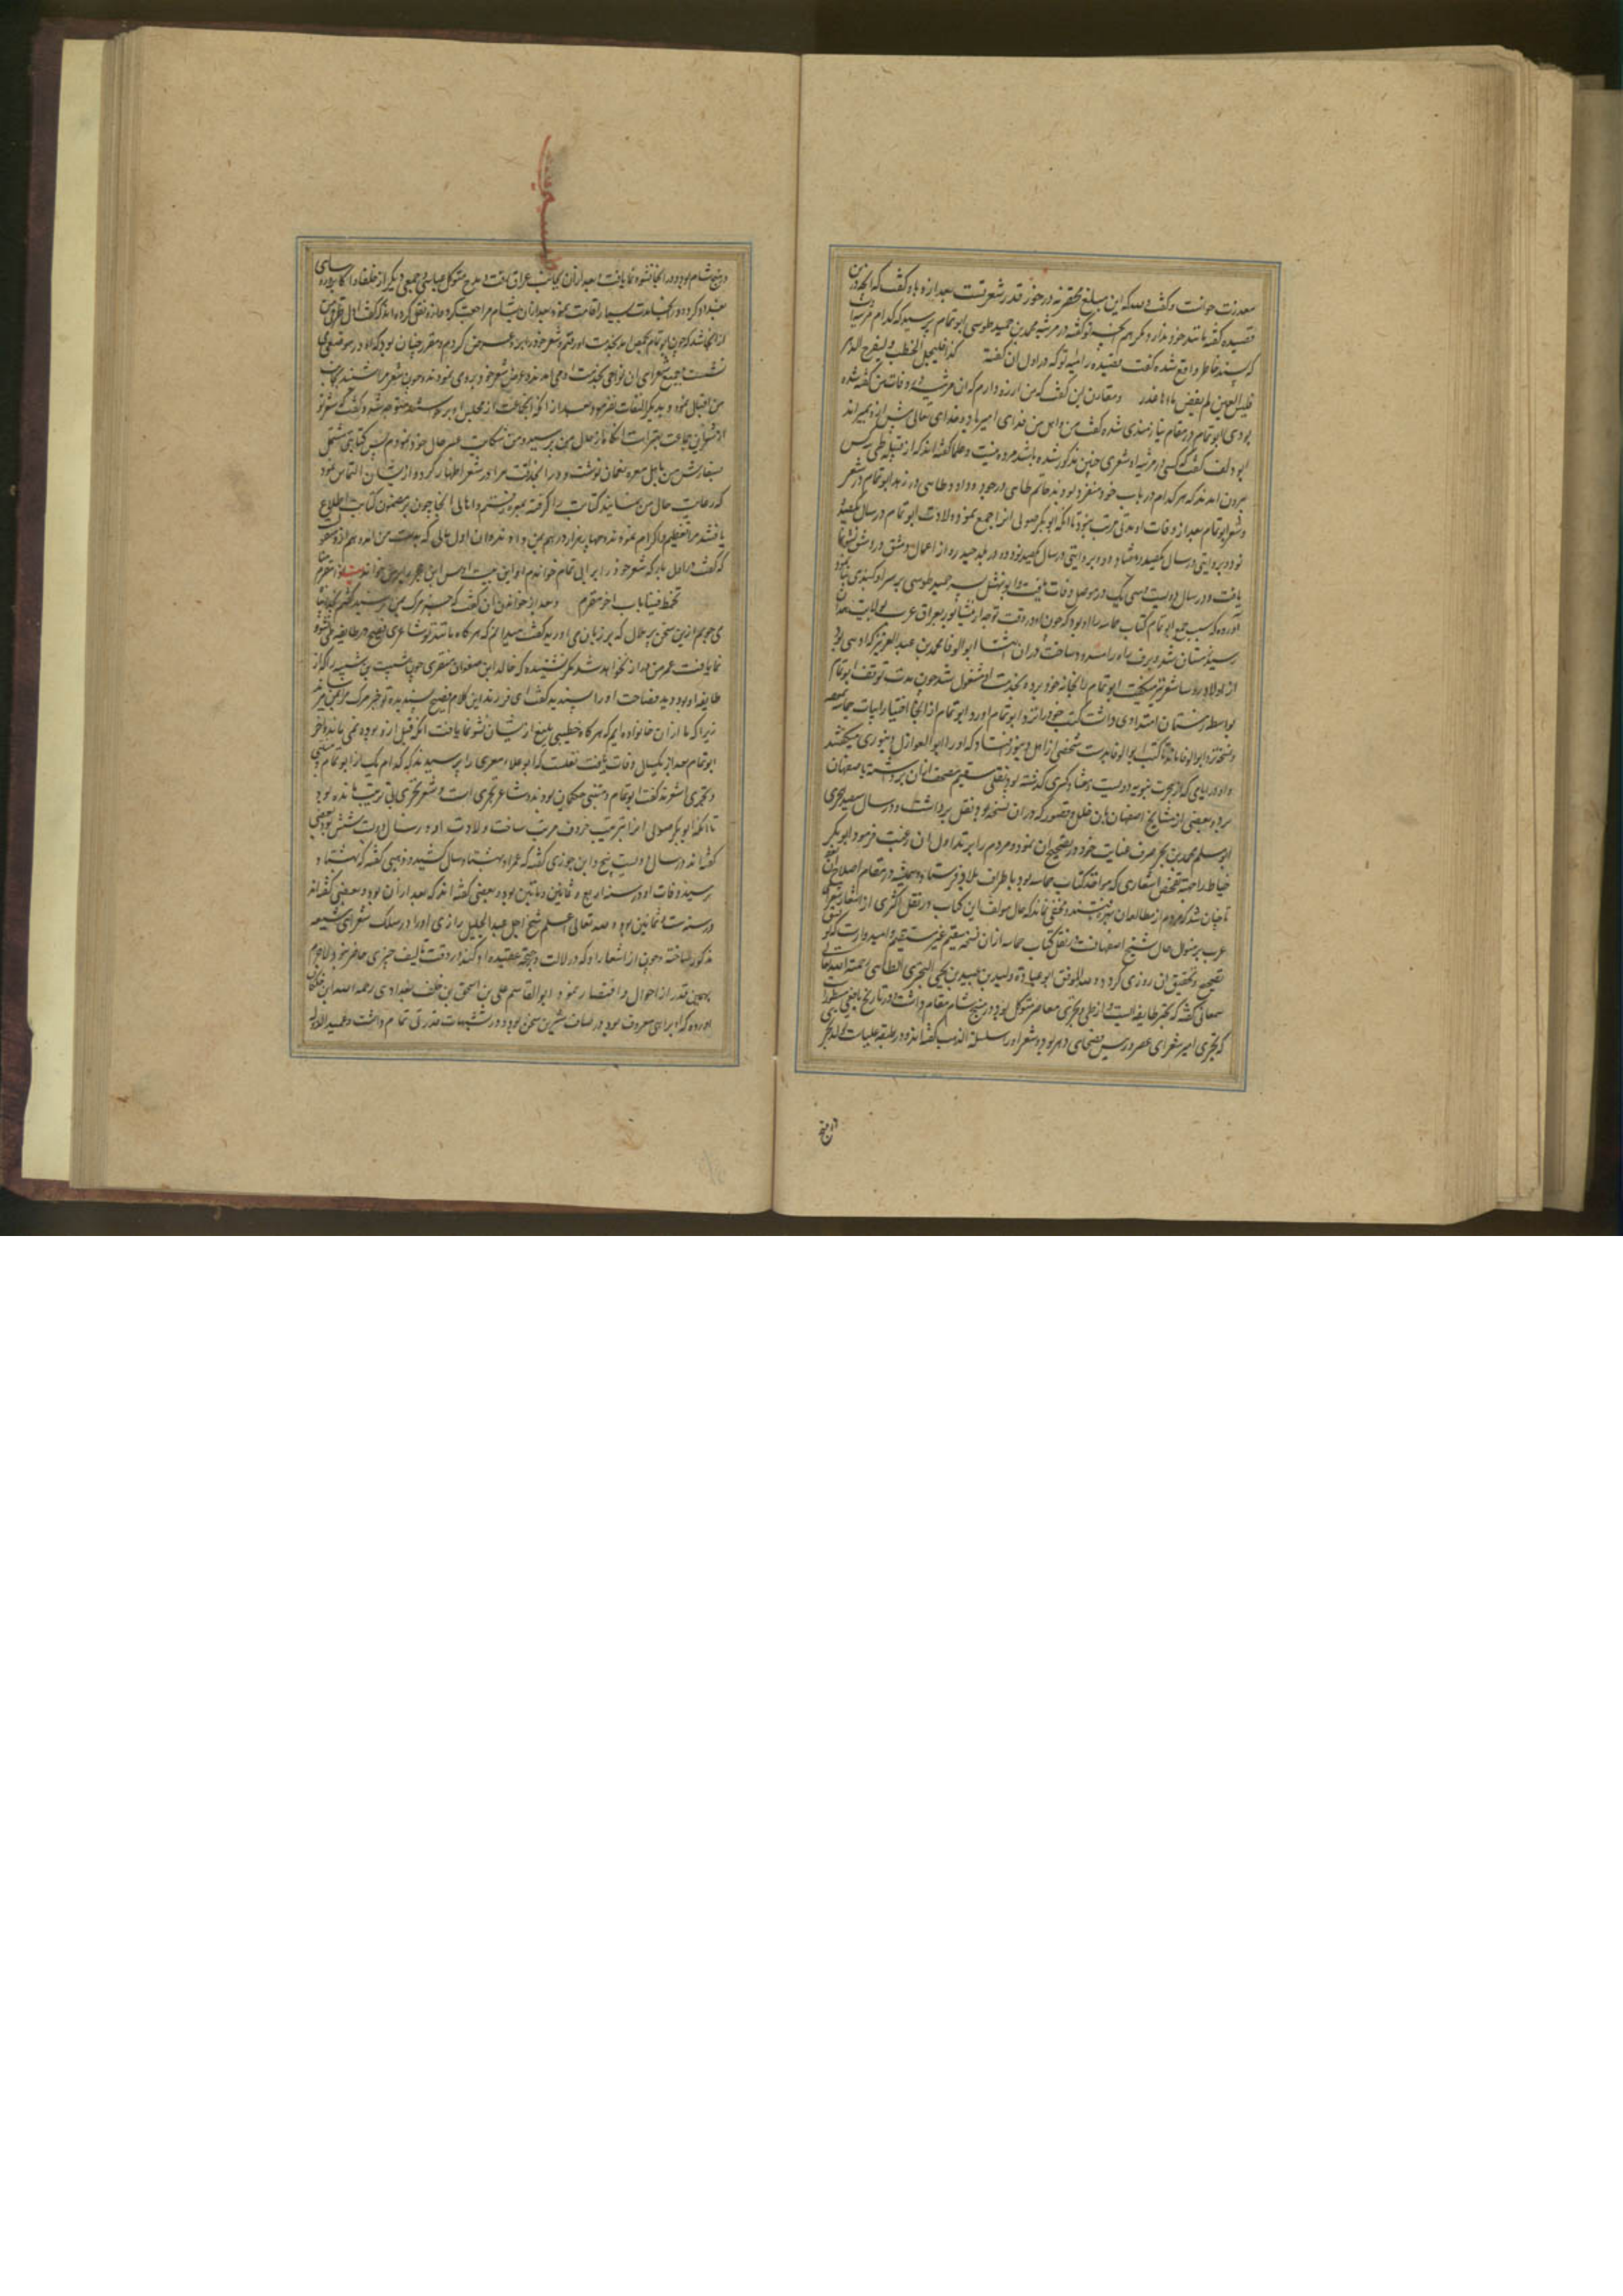 معذرت خواست و گفت والله که این مبلغ محقر نه در خور قدر شعر تست بعد ازو باو گفت که آنچه در این
قصیده گفته مانند خود ندارد مگر هم آنچه تو گفته در مرثیه محمد بن حمید طوسی ابو تمام پرسید که کدام مرثیه
که پسند خاطر واقع شده گفت قصیده رائیه تو که در اول آن گفته کذا فلیجل الخطب و لیفدح الامر
فلیس لعین لم یفض ماءها عذر و مقارن این گفت که من آرزو دارم که آن مرثیه در وفات من گفته شده
بودی ابو تمام در مقام نیازمندی شده گفت من و اهل من فدای امیر باد و خدای تعالی پیش ازو بمیراند
ابو دلف گفت که کسی در مرثیه او شعری چنین مذکور شده باشد مرده نیست و علما گفته‌اند که از قبیله طی سه کس
بیرون آمدند که هر کدام در باب خود منفرد بودند حاتم طائی در جود و داود طائی در زهد ابو تمام در شعر
و شعر ابو تمام بعد از وفات او مدتی مرتب نبود تا آنکه ابو بکر صولی آنرا جمع نمود ولادت ابو تمام در سال یکصد و
نود و بروایتی در سال یکصد و هشتاد و دو و بروایتی در سال یکصد و نود و دو در بلد جیدور از اعمال دمشق و در دمشق نشو و نما
یافت و در سال دویست و سی و یک در موصل وفات یافت و ابو نهشل پسر حمید طوسی بر سر او گنبدی بنا نمود
آورده که سبب جمع ابو تمام کتاب حماسه را او بود که چون او در وقت توجه از نیشابور بعراق عرب بولایت همدان
رسید زمستان شد و برف راه را مسدود ساخت در آن اثنا ابو الوفا محمد بن عبد العزیز که او سی بود
از اولاد روسا شعر نیز میگفت ابو تمام را بخانه خود برده بخدمت او مشغول شد چون مدت توقف ابو تمام
بواسطه زمستان امتدادی داشت کتب خود را نزد ابو تمام آورد ابو تمام از آنجا اختیار ابیات حماسه نمود
و نسخه نزد ابو الوفا ماند تا کتب ابو الوفا بدست شخصی از اهل دینور افتاد که او را ابو العواذل دینوری میگفتند
و او در ایامی که از هجرت نبویه دویست و هشتاد و کسری گذشته بود نقلی سقیم مصحف از آن برداشته باصفهان
برد و بعضی از مشایخ اصفهان با آن خلل و قصور که در آن نسخه بود نقل برداشت و در سال سیصد هجری
ابو مسلم محمد بن بحر صرف عنایت خود در تصحیح آن نمود و مردم را بر تداول آن رغبت فرمود ابو بکر
خیاط را جهة تفحص اشعاری که مواقد کتاب حماسه بود باطراف بلاد فرستاد و همیشه در مقام اصلاح آن بود
تا چنان شد که مردم از مطالعه آن بهره‌ور شدند و مخفی نماند که حال مؤلف این کتاب در نقل اکثری از اشعار شعرای
عرب بر منوال حال شیخ اصفهان است در نقل کتاب حماسه از آن نسخه سقیم غیر مستقیم و امیدوار است که توفیق
تصحیح و تحقیق آن روزی گردد والله الموفق ابو عباده ولید بن عبید بن یحیی البحتری الطائی رحمة الله تعالی
سمعانی گفته که بحتر طایفه ایست از طی و بحتری معاصر متوکل بود در منبج شام مقام داشت و در تاریخ یافعی مسطور است
که بحتری امیر شعرای عصر و رئیس فصحای دهر بود و شعر او را سلسلة الذهب گفته‌اند و در طبقه علیاست مولد بحتری
در منبج شام بود و در آنجا نشو و نما یافت و بعد از آن بجانب عراق رفت و مدح متوکل عباسی و جمعی دیگر از خلفا و اکابر و رؤسای
بغداد کرد و در بغداد مدت بسیار اقامت نمود و بعد از آن بشام مراجعت کرد و از نقل کرده‌اند که گفت اول ترقی من
از آنجا شد که چون ابو تمام بحمص آمد بخدمت او رفتم و شعر خود را برو عرض کردم و مقرر چنان بود که او در موضعی می
نشست و جمیع شعرای آن نواحی بخدمت او می‌آمدند و عرض شعر خود برو می‌نمودند و چون شعر مرا شنید بجانب
من اقبال نمود و بدیگری التفات نفرمود و بعد از آنکه آن جماعت از مجلس او برخاستند متوجه من شد و گفت که شعر تو
از شعر این جماعت بهتر است آنگاه از حال من پرسید و من شکایت عسر حال خود نمودم پس کتابتی مشتمل
بسفارش من باهل معره نعمان نوشت و در آن حذاقت مرا در شعر اظهار کرد و از ایشان التماس نمود
که رعایت حال من نمایند کتابت را گرفته بمعره رفتم و اهالی آنجا چون بر مضمون کتابت اطلاع
یافتند مرا تعظیم و اکرام نمودند و چهار هزار درهم بمن دادند و آن اول مالی که بدست من آمد و هم ازو منقول
که گفت در اول بار که شعر خود را بر ابی تمام خواندم او این بیت اوس ابن حجر بر من خواند بیت اذا مقرم منا
تخمط فینا ناب آخر مقرم و بعد از خواندن آن گفت که خبر مرگ بمن رسید گفتم بخدا پناه
می‌جویم ازین سخن بر حال که بر زبان می‌آورید گفت میدانم که هر گاه مانند تو شاعری فصیح در طایفه طی نشو و
نما یافت عمر من دراز نخواهد شد مگر نشنیده که خالد بن صفوان منقری چون شبیب بن شیبه را که از
طایفه او بود دید فصاحت او را پسندیده گفت ای فرزند این کلام فصیح پسندیده تو خبر مرگ مرا بمن میرساند
زیرا که ما از آن خانواده‌ایم که هر گاه خطیبی بلیغ از ایشان نشو و نما یافت آنکه قبل ازو بوده نمی‌ماند و آخر
ابو تمام بعد از یکسال وفات یافت نقلست که ابو علاء معری را پرسیدند که کدام یک از ابو تمام و متنبی
و بحتری اشعرند گفت ابو تمام و متنبی حکیمان بودند و شاعر بحتری است و شعر بحتری بی ترتیب مانده بود
تا آنکه ابو بکر صولی آنرا بترتیب حروف مرتب ساخت ولادت او در سال دویست و شش بود و بعضی
گفته‌اند در سال دویست و پنج و ابن جوزی گفته که عمر او بهشتاد سال کشید و ذهبی گفته که بهشتاد و
رسید وفات او در سنه اربع و ثمانین و مأتین بود و بعضی گفته‌اند که بعد از آن بود و بعضی گفته‌اند
در سنه ست و ثمانین بود والله تعالی اعلم شیخ اجل عبد الجلیل رازی او را در سلک شعرای شیعه
مذکور ساخته و چون از اشعار او که دلالت بر صحة عقیده او کند در وقت تألیف چیزی حاضر نبود لاجرم
بهمین قدر از احوال او اقتصار نمود ابو القاسم علی بن اسحق بن خلف بغدادی رحمه الله ابن خلکان
آورده که او بزاهی معروف بود در لسان شیرین سخن بود و در تشبیهات قدرتی تمام داشت و عبید الله